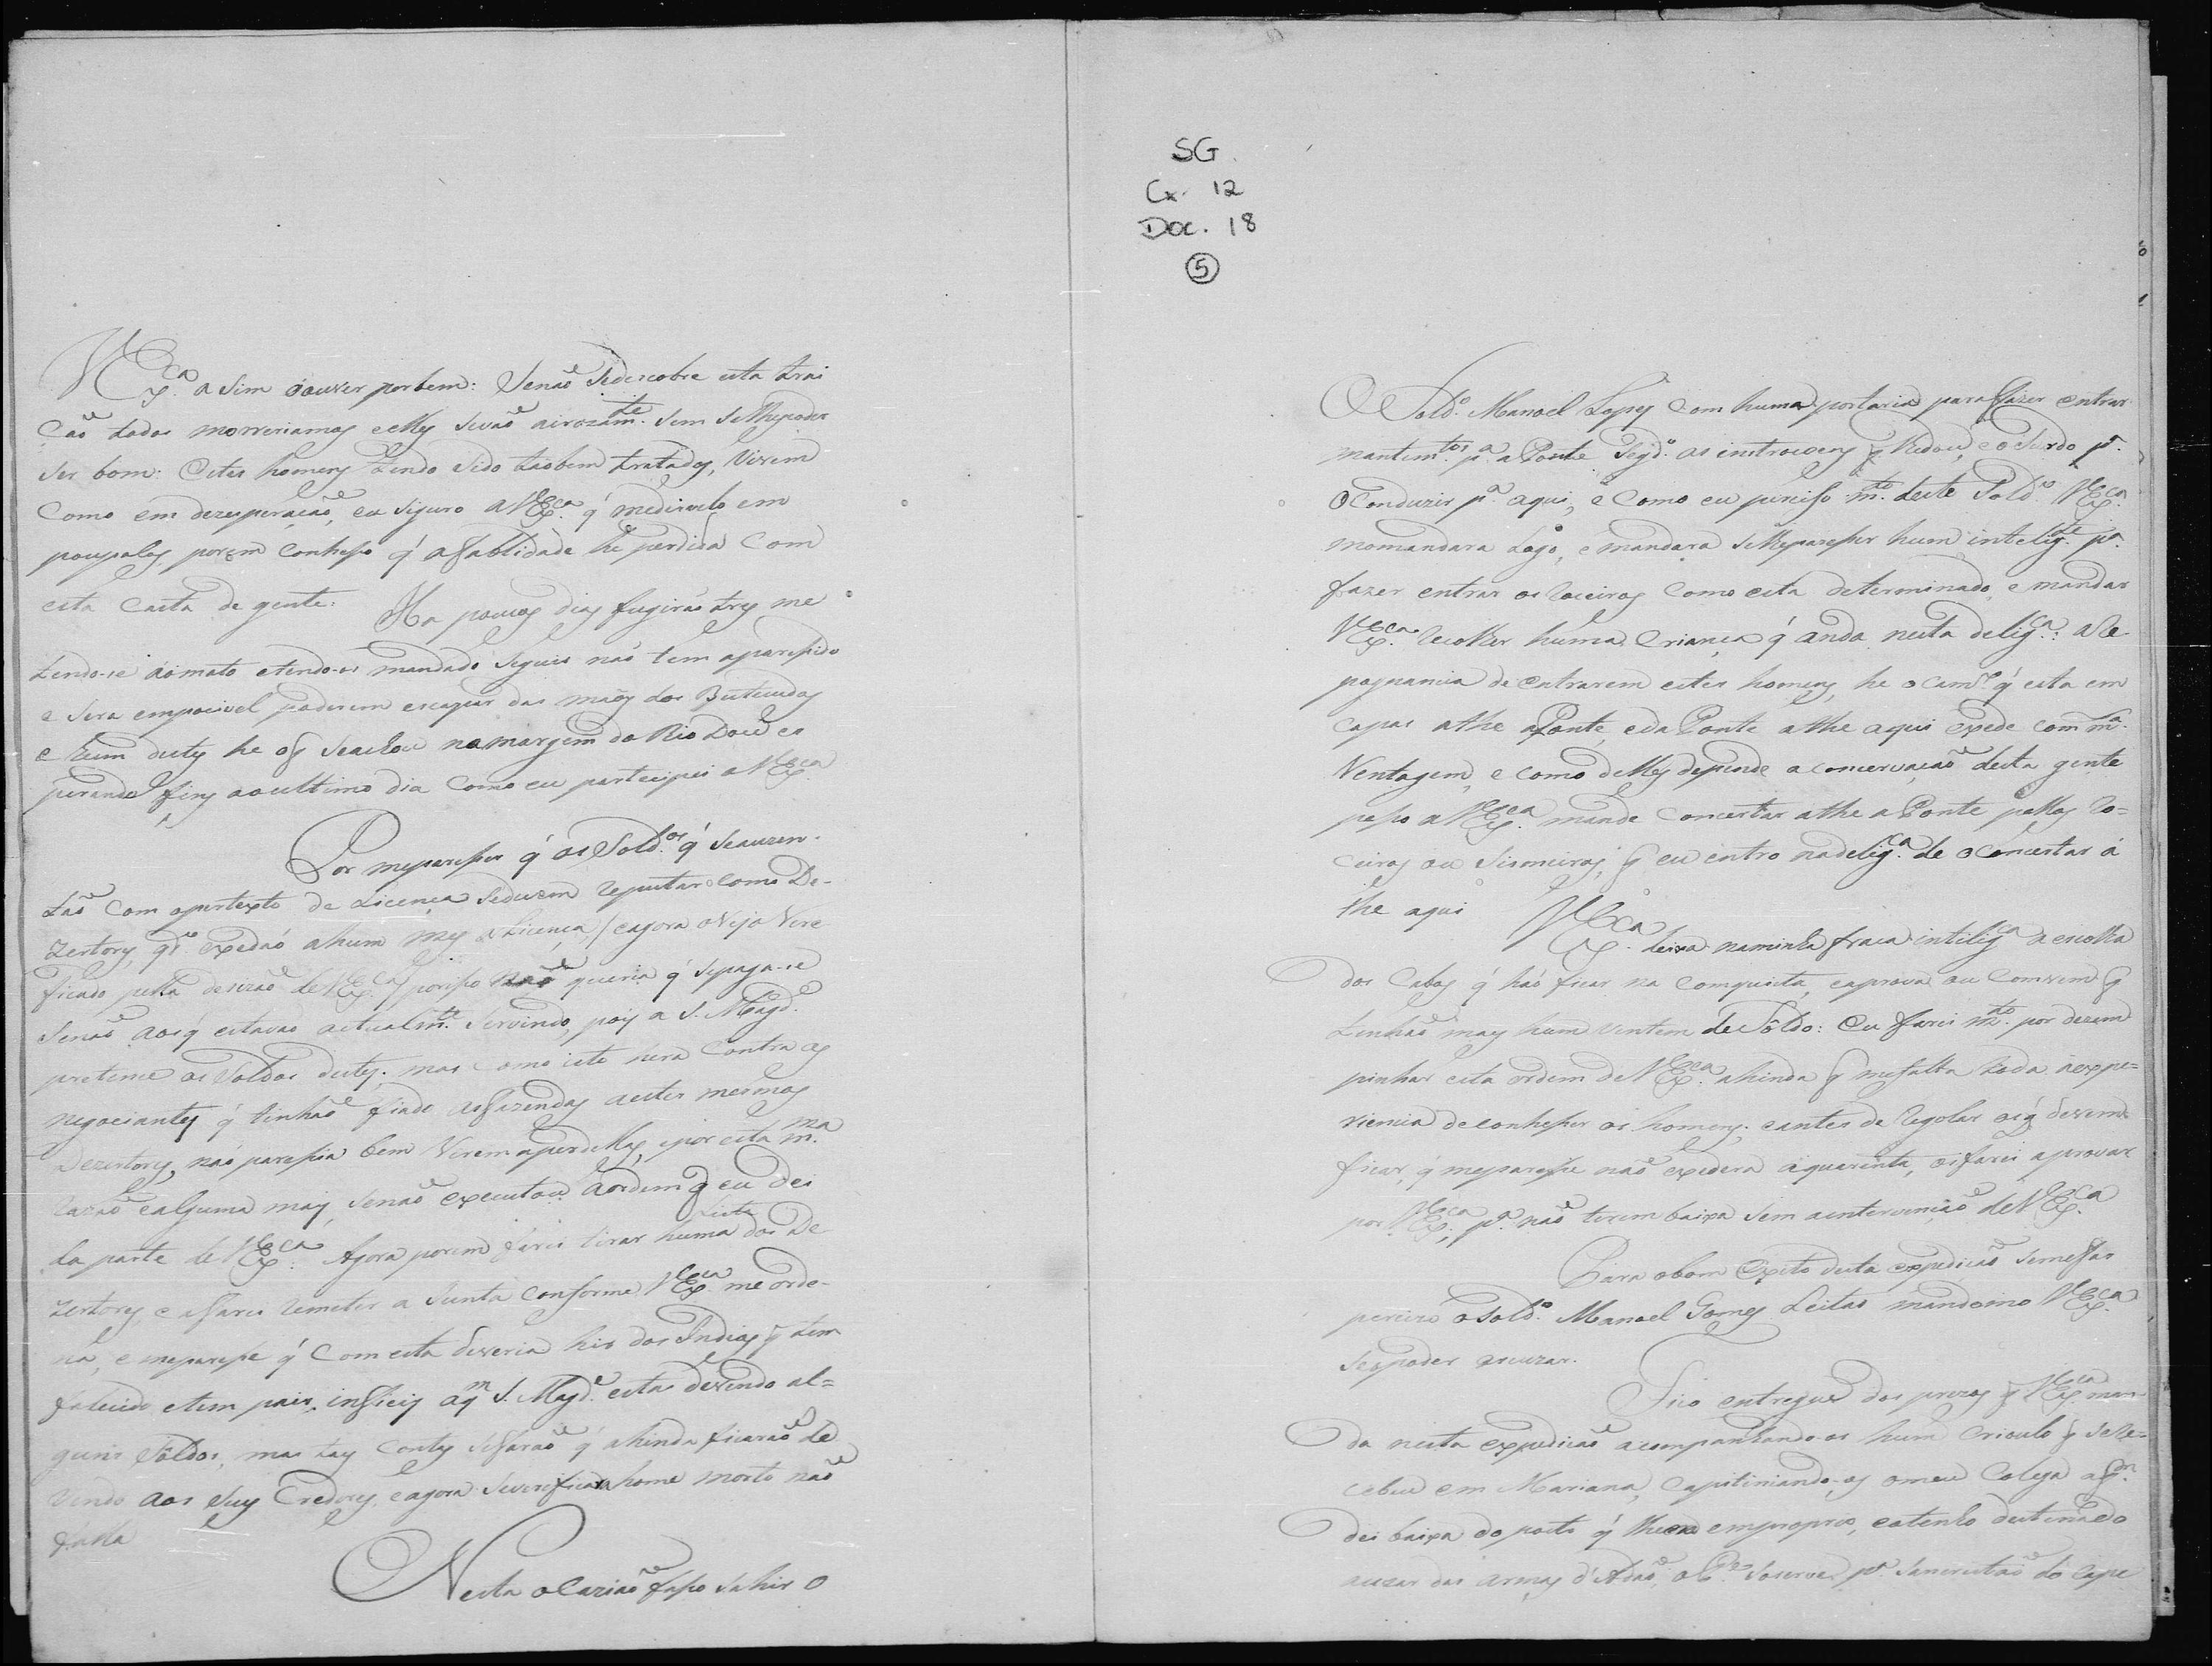 VEx.ca asim ouver por bem: Senaõ Sedescobre esta trai
çaõ todos morreriamos e elles sevaõ airozam.te sem selhepoder
ser bom: Estes homens tendo sido taõbem tratados, vivem
como em dezesperaçaõ, eu siguro a VEx.ca q' medisvelo em
poupalos, porem conheso q' afablidade he perdida com
esta casta de gente. Ha poucos dias fugiraõ tres me
tendo-se aomato etendo-os mandado seguir naõ tem aparesido
e sera empocivel poderem escapar das maõs dos Buticudos
e hum destes he oq seachou namargem do Rio Doce es
perando fins aoultimo dia como eu partecipei a VEx.ca
Por meparesser q' os Sold.os q' seauzen-
taõ com opertexto de Licença sedevem reputar como De-
zertores, q.do expedaõ ahum mes de Licença, / eagora o vejo vere
ficado pella decizaõ de VEx.ca / poriso naõ queria q' sepaga-se
senaõ aos q' estavaõ actualm.te servindo, pois a S. Mag.de
pretence os Soldos destes; mas como isto hera contra os
negociantes q' tinhaõ fiado asfazendas aestes mesmos
Dezertores, naõ paresia bem virem aperdellas, epor esta m.ma
razaõ ealguma mais, senaõ executou aordem q eu dei
da parte de VEx.ca Agora porem farei tirar huma Lista dos De
zertores e afarei remeter a Junta conforme VEx.ca me orde-
na, e meparese q' com esta deveria hir dos Indios q tem
falecido etem pais infieis aq.m S. Mag.de esta devendo al=
guns Soldos, mas tas contas sefaraõ q' ahinda ficaraõ de
vendo aos seus Credores, eagora severefica home morto naõ
falla
Nesta ocaziaõ faso sahir o
SG.
Cx. 12
Doc. 18
5
O Sold.o Manoel Lopes com huma portaria para fazer entrar
mantim.tos p.a a Ponte Seg.do as instruçoens q hedou, e o Surdo p.a
o conduzir p.a aqui, e como eu perciso m.to deste Sold.o VEx.ca
momandara Logo, e mandara selheparesser hum intelig.te p.a
fazer entrar os roceiros como esta determinado, e mandar
VEx.ca recolher huma Criança q' anda nesta delig.ca: a re
pugnancia de entrarem estes homens, he o cam.o q' esta em
capas athe aPonte, eda Ponte athe aqui expede com m.ta
Ventagem, e como delles depende a concervaçaõ desta gente
peso a VEx.ca mande concertar athe a Ponte pellos ro=
ceiros ou sismeiros, q eu entro nadelig.ca de o concertar a
the aqui VEx.ca
deixa naminha fraca intilig.ca a escolha
dos Cabos q' haõ ficar na comquista, eaprova ou comvem q
tenhaõ mais hum vintem de Sôldo: Eu farei m.to por dezem
pinhar esta ordem de VEx.ca ahinda q mefalta toda aexpe=
riencia deconheser os homens; eantes de regolar os q' devem
ficar, q' meparese naõ expedera aquarenta, osfarei aprovar
por VEx.ca, p.a naõ terem baixa sem aintervençaõ de VEx.ca
Para obom exito desta expediçaõ semefas
perciso oSold.o Manoel Gomes Leitaõ mandeimo VEx.ca
seopoder escuzar.
Fico entregue dos prezos q VEx.ca man
da nesta expediçaõ acompanhando-os hum Crioulo q sere=
cebeu em Mariana, capitiniando-os omeu Colega aq.m
dei baixa do posto q' lhe era empropio, eotenho destinado
auzar das armas d'Adaõ, o C.o soserve p.a